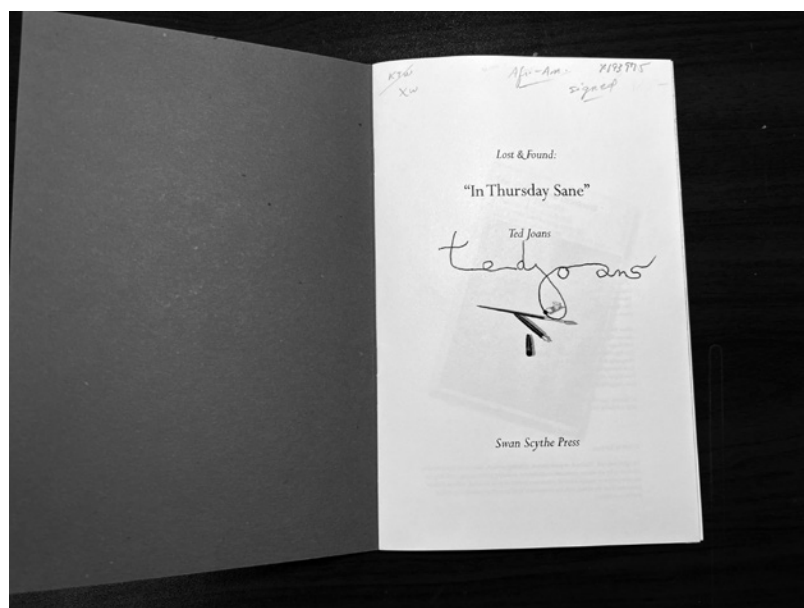 Afri-Am.
signed
XW
Lost & Found:
"In Thursday Sane"
Ted Joans
ted joans
Swan Scythe Press